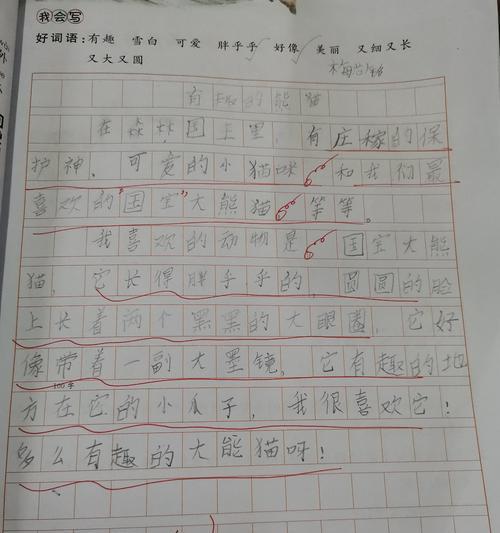 我会写
好词语：有趣 雪白 可爱 胖乎乎 好像 美丽 又细又长
又大又圆
有趣的熊猫
在森林国王里，有庄稼的保
护神、可爱的小猫咪、和我们最
喜欢的"国宝"大熊猫等等。
我喜欢的动物是国宝大熊
猫，它长得胖乎乎的，圆圆的脸
上长着两个黑黑的大眼圈，它好
像带着一副大墨镜，它有趣的地
100字
方在它的小爪子，我很喜欢它！
多么有趣的大熊猫呀！